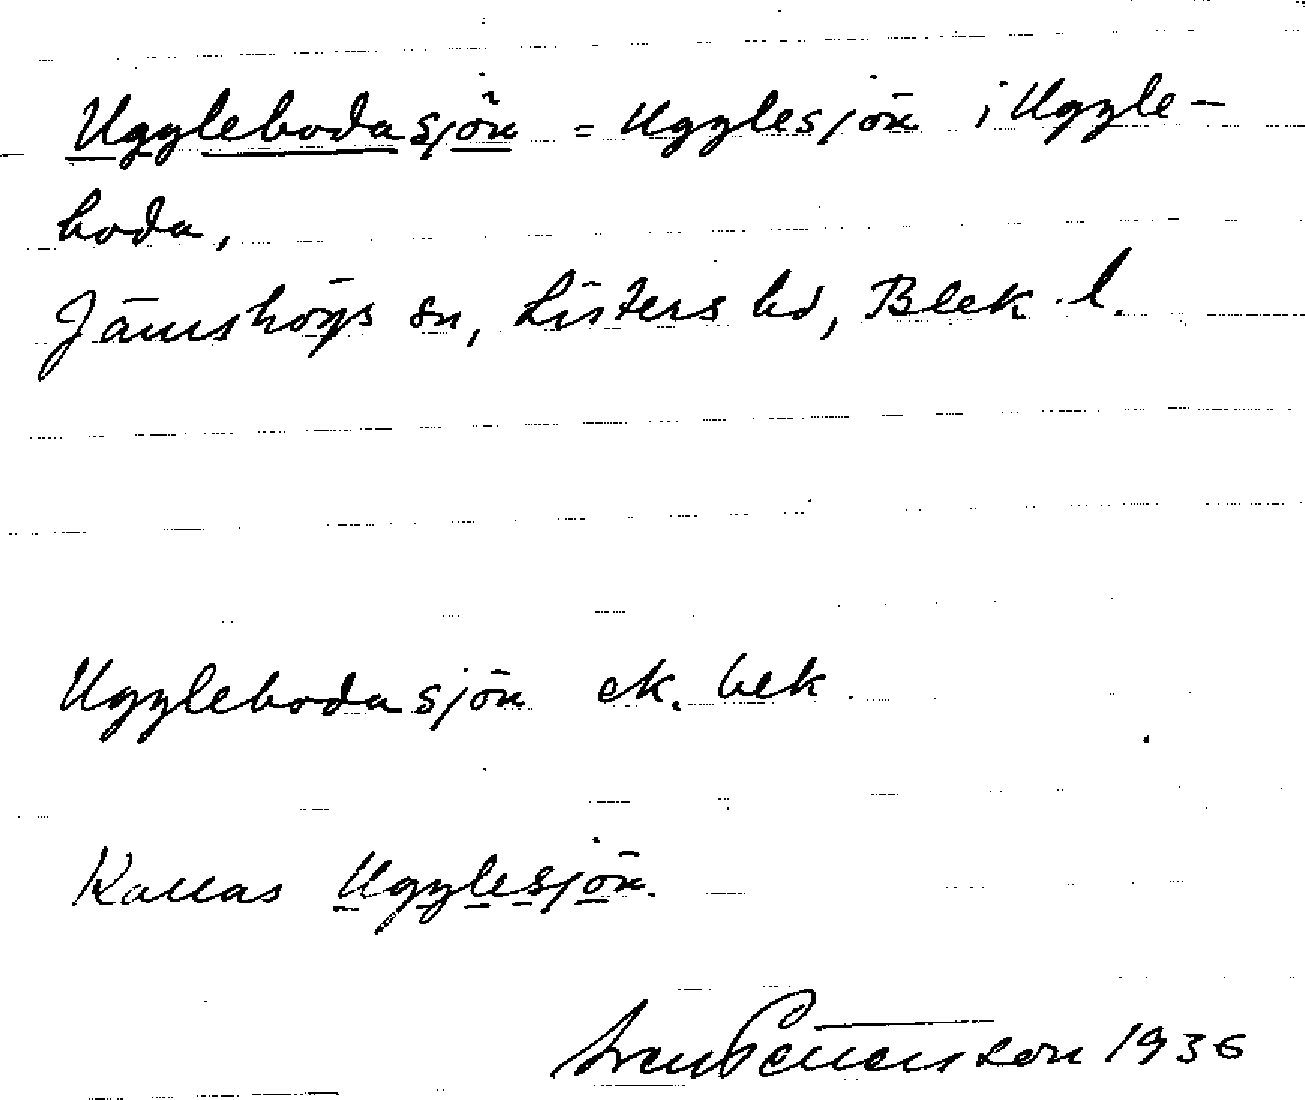 Ugglebodasjön = Ugglesjön i Uggle-
boda,
Jämshögs sn, Listers hd, Blek. l.
Ugglebodasjön ek. bek.
Kallas Ugglesjön.
Sven Pettersson 1936